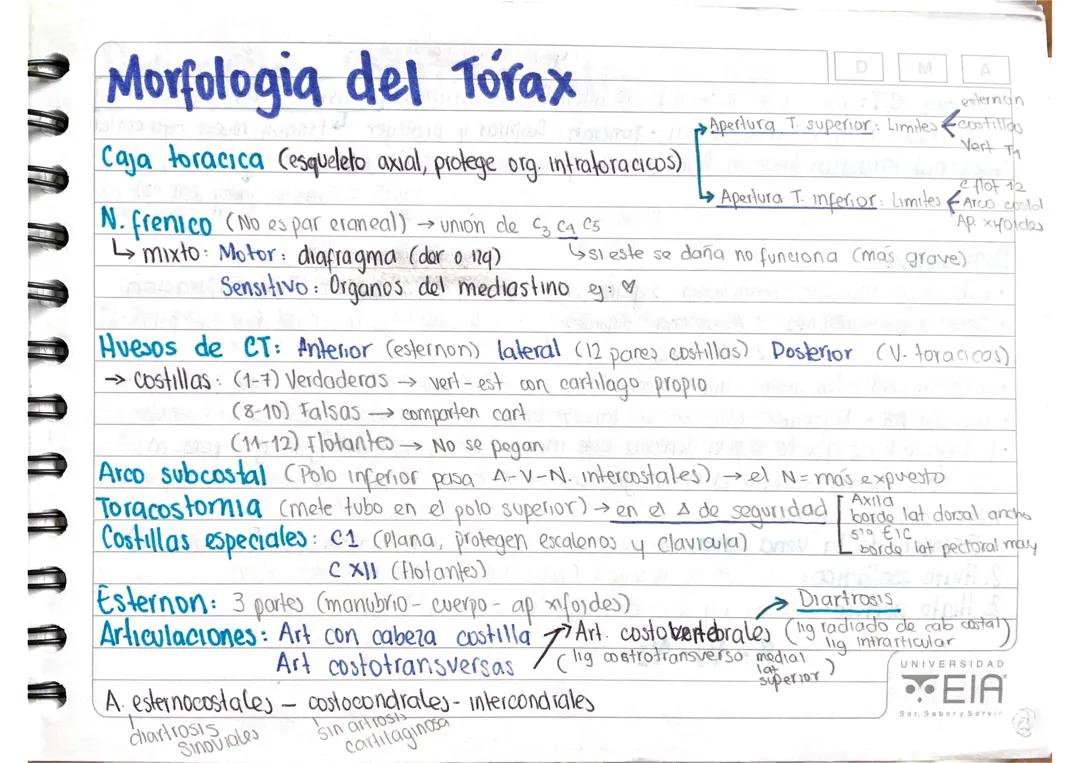 Morfologia del Tórax
D M A
Caja toracica (esqueleto axial, protege org. intratoracicos)
Apertura T. superior: Limites
esternon
costillas
Vert T1
Apertura T. inferior: Limites
c flot 12
Arco costal
Ap. xyfoides
N. frenico (No es par craneal) → unión de C3 C4 C5
↳ mixto: Motor: diafragma (der o izq)
↳ si este se daña no funciona (más grave)
Sensitivo: Organos del mediastino ej: ♡
Huesos de CT: Anterior (esternon) lateral (12 pares costillas) Posterior (V. toracicas)
→ costillas: (1-7) Verdaderas → vert-est con cartilago propio
(8-10) Falsas → comparten cart
(11-12) Flotante → No se pegan
Arco subcostal (Polo inferior pasa A-V-N. intercostales) → el N = más expuesto
Toracostomia (mete tubo en el polo superior) → en el Δ de seguridad
Axila
borde lat dorsal ancho
5to EIC
borde lat pectoral may
Costillas especiales: C1 (Plana, protegen escalenos y clavicula)
C XII (flotantes)
Esternon: 3 partes (manubrio - cuerpo - ap xifoides)
Articulaciones: Art con cabeza costilla
Art. costovertebrales
Diartrosis
(lig radiado de cab costal)
lig intrarticular
Art costotransversas
(lig costrotransverso medial
lat
superior)
A. esternocostales - costocondrales - intercondrales
diartrosis
sinoviales
sin artrosis
cartilaginosa
UNIVERSIDAD
EIA
Ser, Saber y Servir